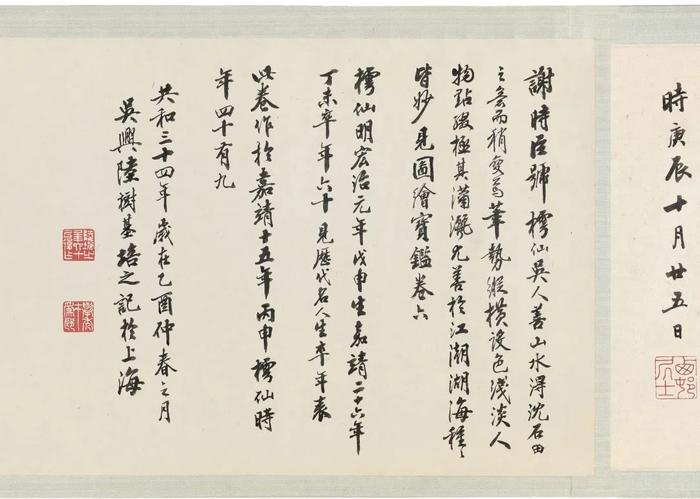 時庚辰十月廿五日
謝時臣號樗仙吳人善山水得沈石田
之意而稍變焉筆勢縱橫設色淺淡人
物點綴極其瀟灑尤善於江潮湖海種々
皆妙見圖繪寶鑑卷六
樗仙明宏治元年戊申生嘉靖二十六年
丁未卒年六十見歷代名人生卒年表
此卷作於嘉靖十五年丙申樗仙時
年四十有九
共和三十四年歲在乙酉仲春之月
吳興陸樹基培之記於上海